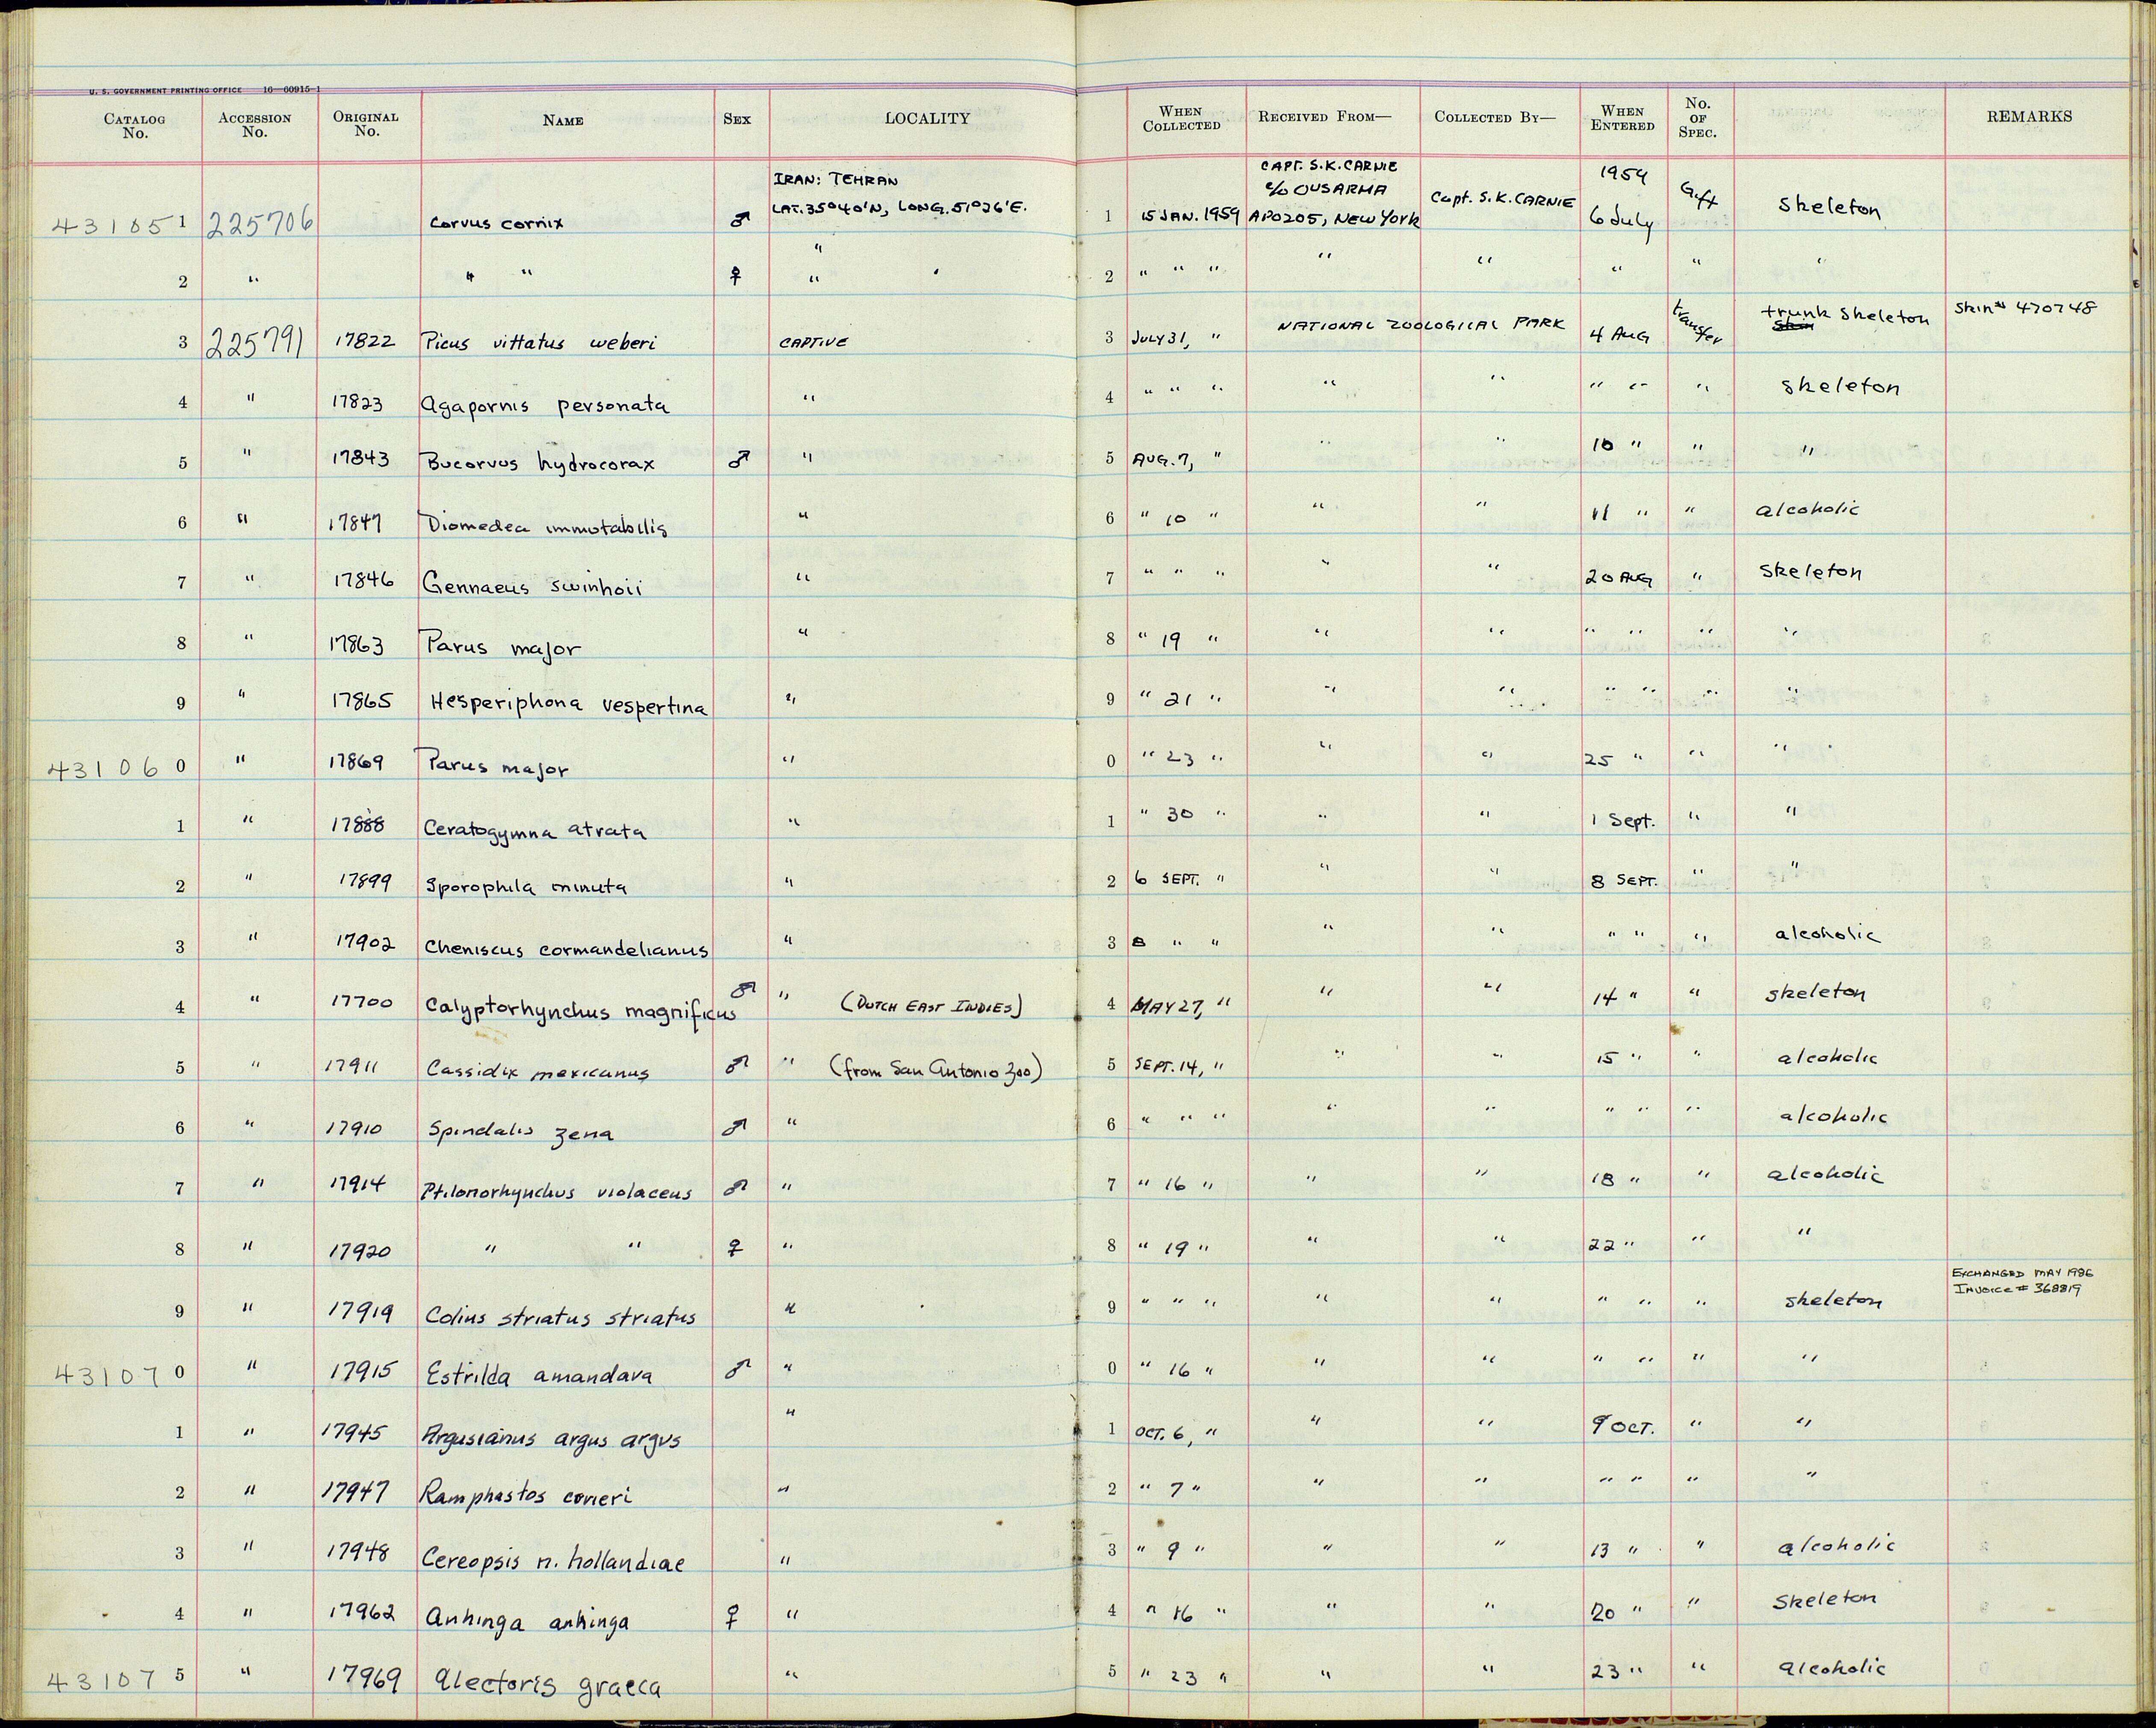 U. S. GOVERNMENT PRINTING OFFICE 16—60915-1
CATALOG No. ACCESSION No. ORIGINAL No. NAME SEX LOCALITY WHEN COLLECTED RECEIVED FROM— COLLECTED BY— WHEN ENTERED No. OF SPEC. REMARKS
IRAN: TEHRAN CAPT. S.K. CARNIE 1959
LAT. 35°40'N, LONG. 51°26'E. c/o OUSARMA
431051 225706 Corvus cornix ♂ 1 15 JAN. 1959 APO205, NEW YORK Capt. S.K. CARNIE 6 July Gift Skeleton
"
2 " " " ♀ " 2 " " " " " " " "
3 225791 17822 Picus vittatus weberi CAPTIVE 3 JULY 31, " NATIONAL ZOOLOGICAL PARK 4 AUG transfer trunk skeleton Skin# 470748
Skin
4 " 17823 Agapornis personata " 4 " " " " " " " " skeleton
5 " 17843 Bucorvus hydrocorax ♂ " 5 AUG. 7, " " " 10 " " "
6 " 17847 Diomedea immutabilis " 6 " 10 " " " 11 " " alcoholic
7 " 17846 Gennaeus swinhoii " 7 " " " " " 20 AUG " skeleton
8 " 17863 Parus major " 8 " 19 " " " " " " "
9 " 17865 Hesperiphona vespertina " 9 " 21 " " " " " " "
431060 " 17869 Parus major " 0 " 23 " " " 25 " " "
1 " 17888 Ceratogymna atrata " 1 " 30 " " " 1 Sept. " "
2 " 17899 Sporophila minuta " 2 6 SEPT. " " " 8 SEPT. " "
3 " 17902 Cheniscus cormandelianus " 3 8 " " " " " " " alcoholic
4 " 17700 Calyptorhynchus magnificus ♂ " (DUTCH EAST INDIES) 4 MAY 27, " " " 14 " " skeleton
5 " 17911 Cassidix mexicanus ♂ " (from San Antonio Zoo) 5 SEPT. 14, " " " 15 " " alcoholic
6 " 17910 Spindalis zena ♂ " 6 " " " " " " " " alcoholic
7 " 17914 Ptilonorhynchus violaceus ♂ " 7 " 16 " " " 18 " " alcoholic
8 " 17920 " " ♀ " 8 " 19 " " " 22 " " "
EXCHANGED MAY 1986
9 " 17919 Colius striatus striatus " 9 " " " " " " " " skeleton INVOICE # 368819
431070 " 17915 Estrilda amandava ♂ " 0 " 16 " " " " " " "
1 " 17945 Argusianus argus argus " 1 OCT. 6, " " " 9 OCT. " "
2 " 17947 Ramphastos cuvieri " 2 " 7 " " " " " " "
3 " 17948 Cereopsis n. hollandiae " 3 " 9 " " " 13 " " alcoholic
4 " 17962 Anhinga anhinga ♀ " 4 " 16 " " " 20 " " Skeleton
431075 " 17969 Alectoris graeca " 5 " 23 " " " 23 " " alcoholic